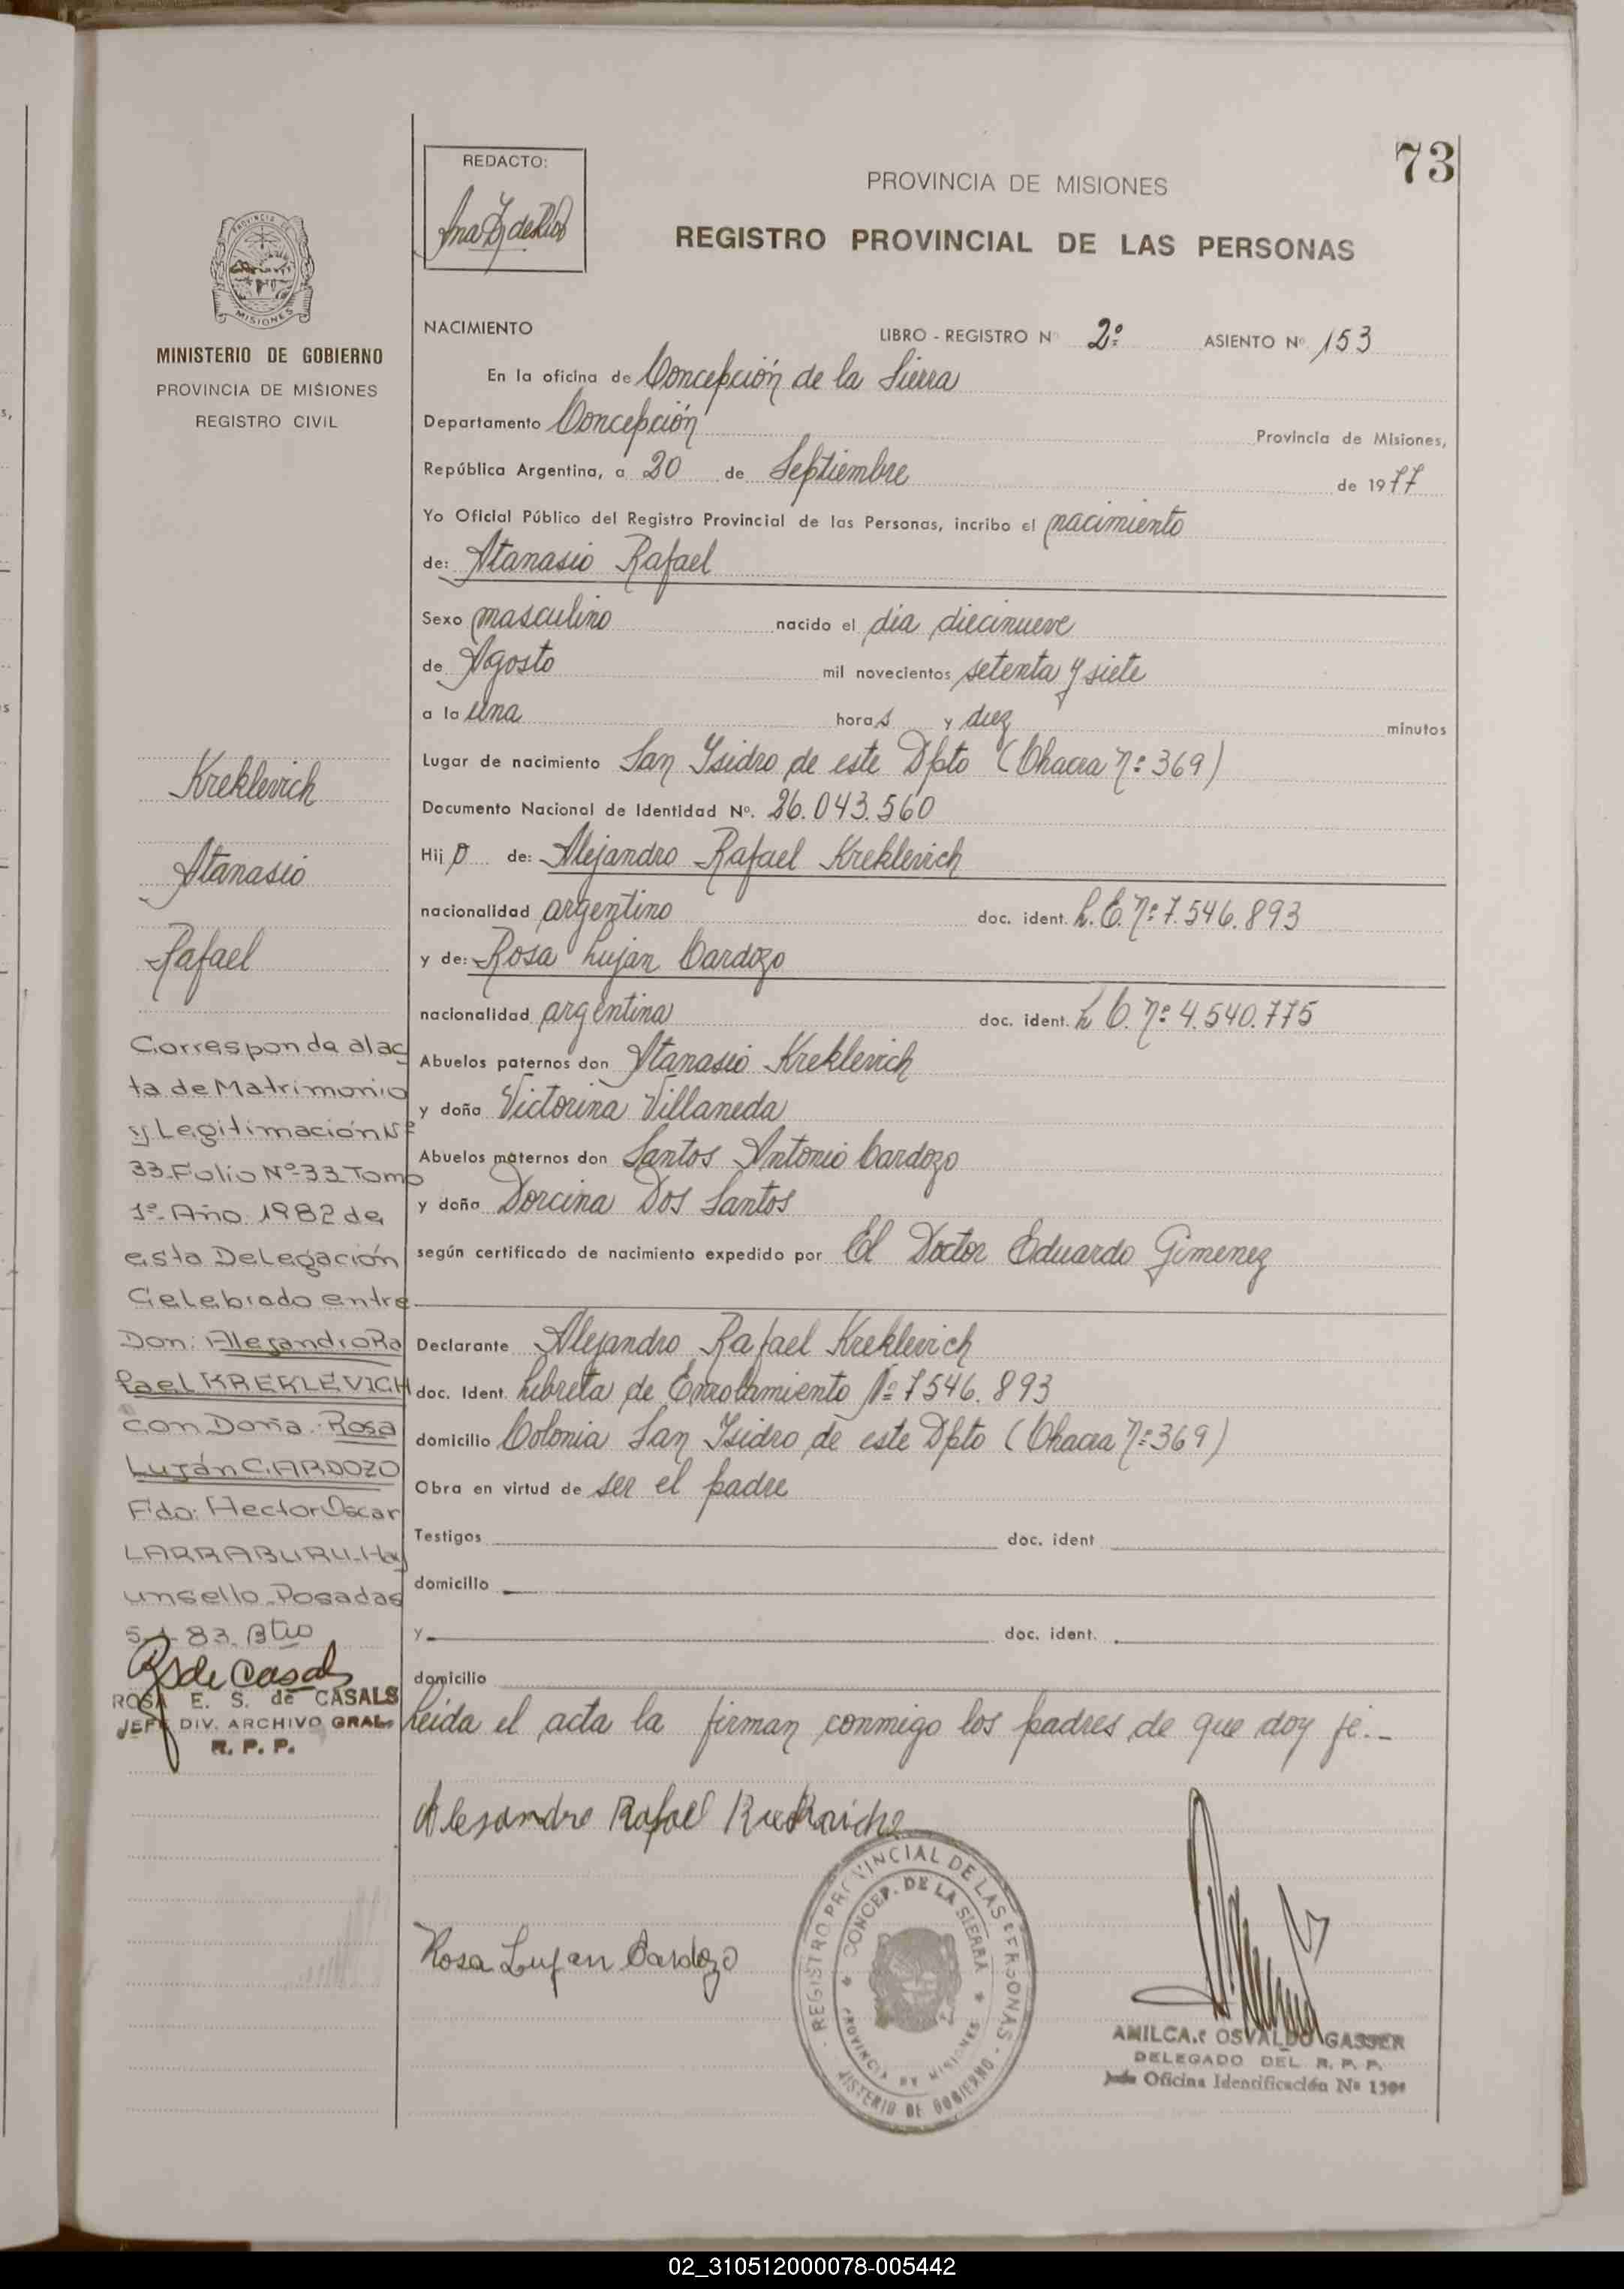 73
REDACTO:
PROVINCIA DE MISIONES
REGISTRO PROVINCIAL DE LAS PERSONAS
PROVINCIA DE
MISIONES
MINISTERIO DE GOBIERNO
PROVINCIA DE MISIONES
REGISTRO CIVIL
NACIMIENTO LIBRO - REGISTRO Nº 2º ASIENTO Nº 153
En la oficina de Concepción de la Sierra
Departamento Concepción Provincia de Misiones,
República Argentina, a 20 de Septiembre de 1977
Yo Oficial Público del Registro Provincial de las Personas, incribo el nacimiento
de: Atanasio Rafael
Sexo masculino nacido el día diecinueve
de Agosto mil novecientos setenta y siete
a la una horas y diez minutos
Lugar de nacimiento San Isidro de este Dpto (Chacra Nº 369)
Documento Nacional de Identidad Nº. 26.043.560
Hijo de: Alejandro Rafael Kreklevich
nacionalidad argentino doc. ident. L.E. Nº 7.546.893
y de: Rosa Luján Cardozo
nacionalidad argentina doc. ident. L C. Nº 4.540.775
Abuelos paternos don Atanasio Kreklevich
y doña Victorina Villaneda
Abuelos maternos don Santos Antonio Cardozo
y doña Dorcina Dos Santos
según certificado de nacimiento expedido por El Doctor Eduardo Gimenez
Declarante Alejandro Rafael Kreklevich
doc. Ident. Libreta de Enrolamiento Nº 7546.893
domicilio Colonia San Isidro de este Dpto (Chacra Nº 369)
Obra en virtud de ser el padre
Testigos doc. ident
domicilio
y doc. ident.
domicilio
Leída el acta la firman conmigo los padres de que doy fé.-
Kreklevich
Atanasio
Rafael
Corresponde al ac
ta de Matrimonio
y Legitimación Nº
33-Folio Nº-33 Tomo
1º- Año 1982 de
esta Delegación
Celebrado entre
Don: Alejandro Ra
fael KREKLEVICH
con Doña: Rosa
Luján CARDOZO
Fdo: Hector Oscar
LARRABURU-Hay
un sello-Posadas
5-1-83.
Rs de Casals
ROSA E. S. de CASALS
JEFE DIV. ARCHIVO GRAL.
R. P. P.
Alejandro Rafael
Rosa Lujan Cardozo
REGISTRO PROVINCIAL DE LAS PERSONAS
CONCEP. DE LA SIERRA
PROVINCIA DE MISIONES
MINISTERIO DE GOBIERNO
AMILCAR OSVALDO GASSER
DELEGADO DEL R. P. P.
Oficina Identificación Nº
02_310512000078-005442